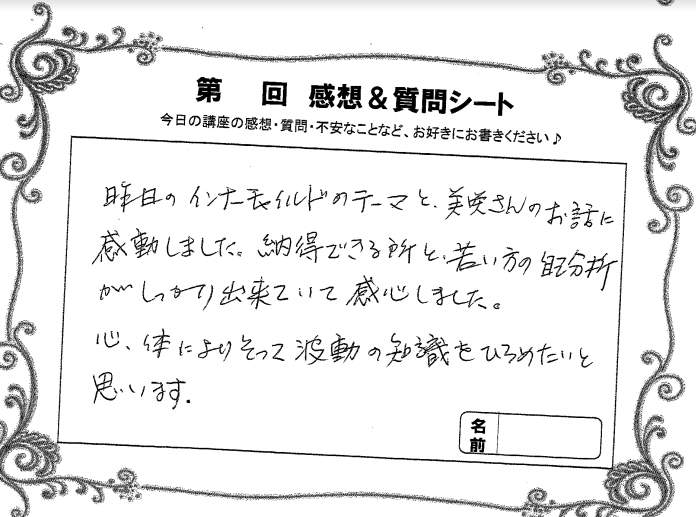 第　回 感想＆質問シート
今日の講座の感想・質問・不安なことなど、お好きにお書きください♪
昨日のインナーチャイルドのテーマと、美咲さんのお話に
感動しました。納得できる所と、若い方の自己分析
がしっかり出来ていて感心しました。
心、体によりそって波動の知識をひろめたいと
思います.
名前